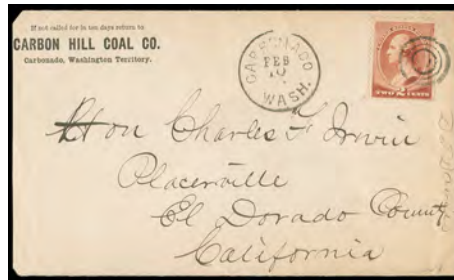 If not called for in ten days return to
CARBON HILL COAL CO.
Carbonado, Washington Territory.
CARBONADO
FEB
10
WASH.
TWO 2 CENTS
Hon Charles F Irwin
Placerville
El Dorado County
California